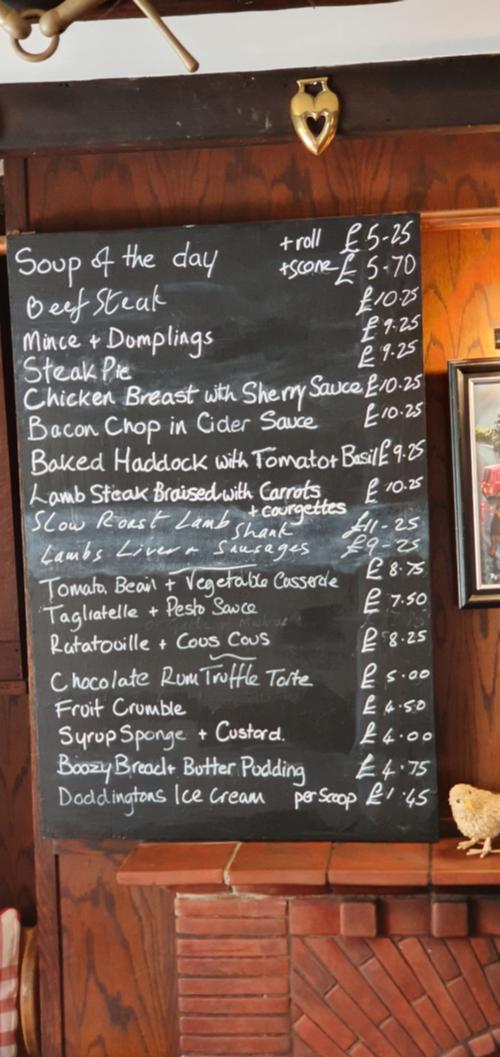 Soup of the day +roll £5-25
+scone £5-70
Beef Steak £10.25
Mince + Dumplings £9.25
Steak Pie £9.25
Chicken Breast with Sherry Sauce £10.25
Bacon Chop in Cider Sauce £10.25
Baked Haddock with Tomato + Basil £9.25
Lamb Steak Braised with Carrots £10.25
+ courgettes
Slow Roast Lamb Shank £11-25
Lambs Liver + Sausages £9-25
Tomato, Bean + Vegetable Casserole £8.75
Tagliatelle + Pesto Sauce £7.50
Ratatouille + Cous Cous £8.25
Chocolate Rum Truffle Torte £5.00
Fruit Crumble £4.50
Syrup Sponge + Custard. £4.00
Boozy Bread + Butter Pudding £4.75
Doddingtons Ice Cream per Scoop £1.45